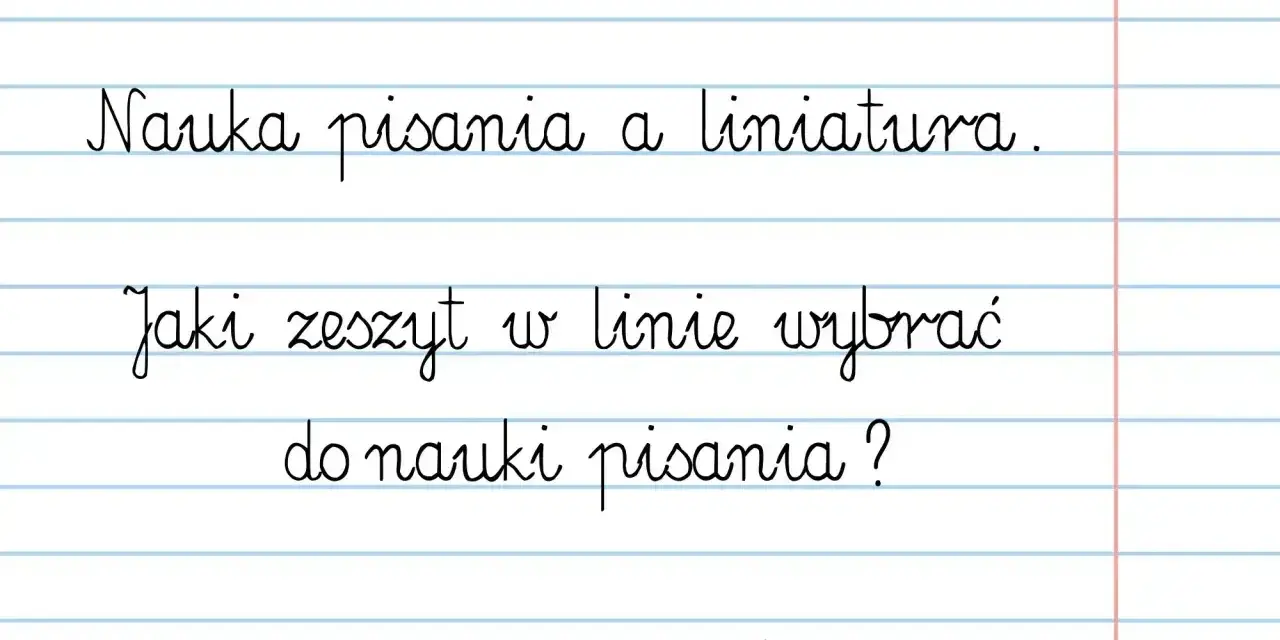 Nauka pisania a liniatura.
Jaki zeszyt w linie wybrać
do nauki pisania?